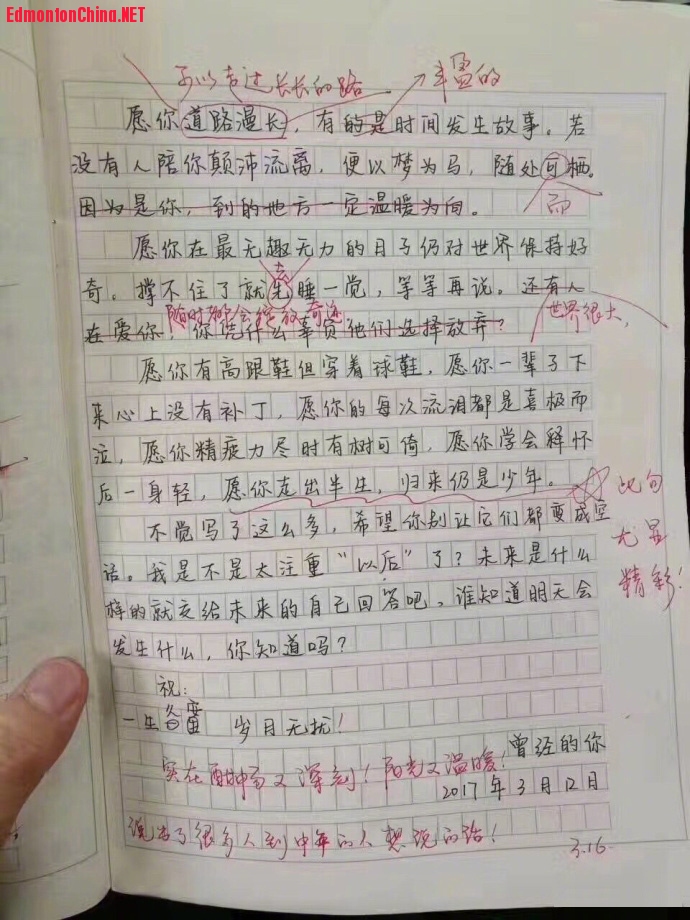 EdmontonChina.NET
可以走过长长的路
丰盈的
愿你道路漫长，有的是时间发生故事。若
没有人陪你颠沛流离，便以梦为马，随处可栖。
而
因为是你，到的地方一定温暖为向。
愿你在最无趣无力的日子仍对世界保持好
去
奇。撑不住了就先睡一觉，等等再说。还有人
随时都会绽放奇迹
世界很大，
在爱你，你凭什么辜负他们选择放弃？
愿你有高跟鞋但穿着球鞋，愿你一辈子下
来心上没有补丁，愿你的每次流泪都是喜极而
泣，愿你精疲力尽时有树可倚，愿你学会释怀
后一身轻，愿你走出半生，归来仍是少年。
此句
尤显
精彩！
不觉写了这么多，希望你别让它们都变成空
话。我是不是太注重“以后”了？未来是什么
样的就交给未来的自己回答吧，谁知道明天会
发生什么，你知道吗？
祝：
一生 岁月无扰！
曾经的你
实在 又深刻！阳光又温暖！
2017年3月12日
说出了很多人到中年的人想说的话！
3.16